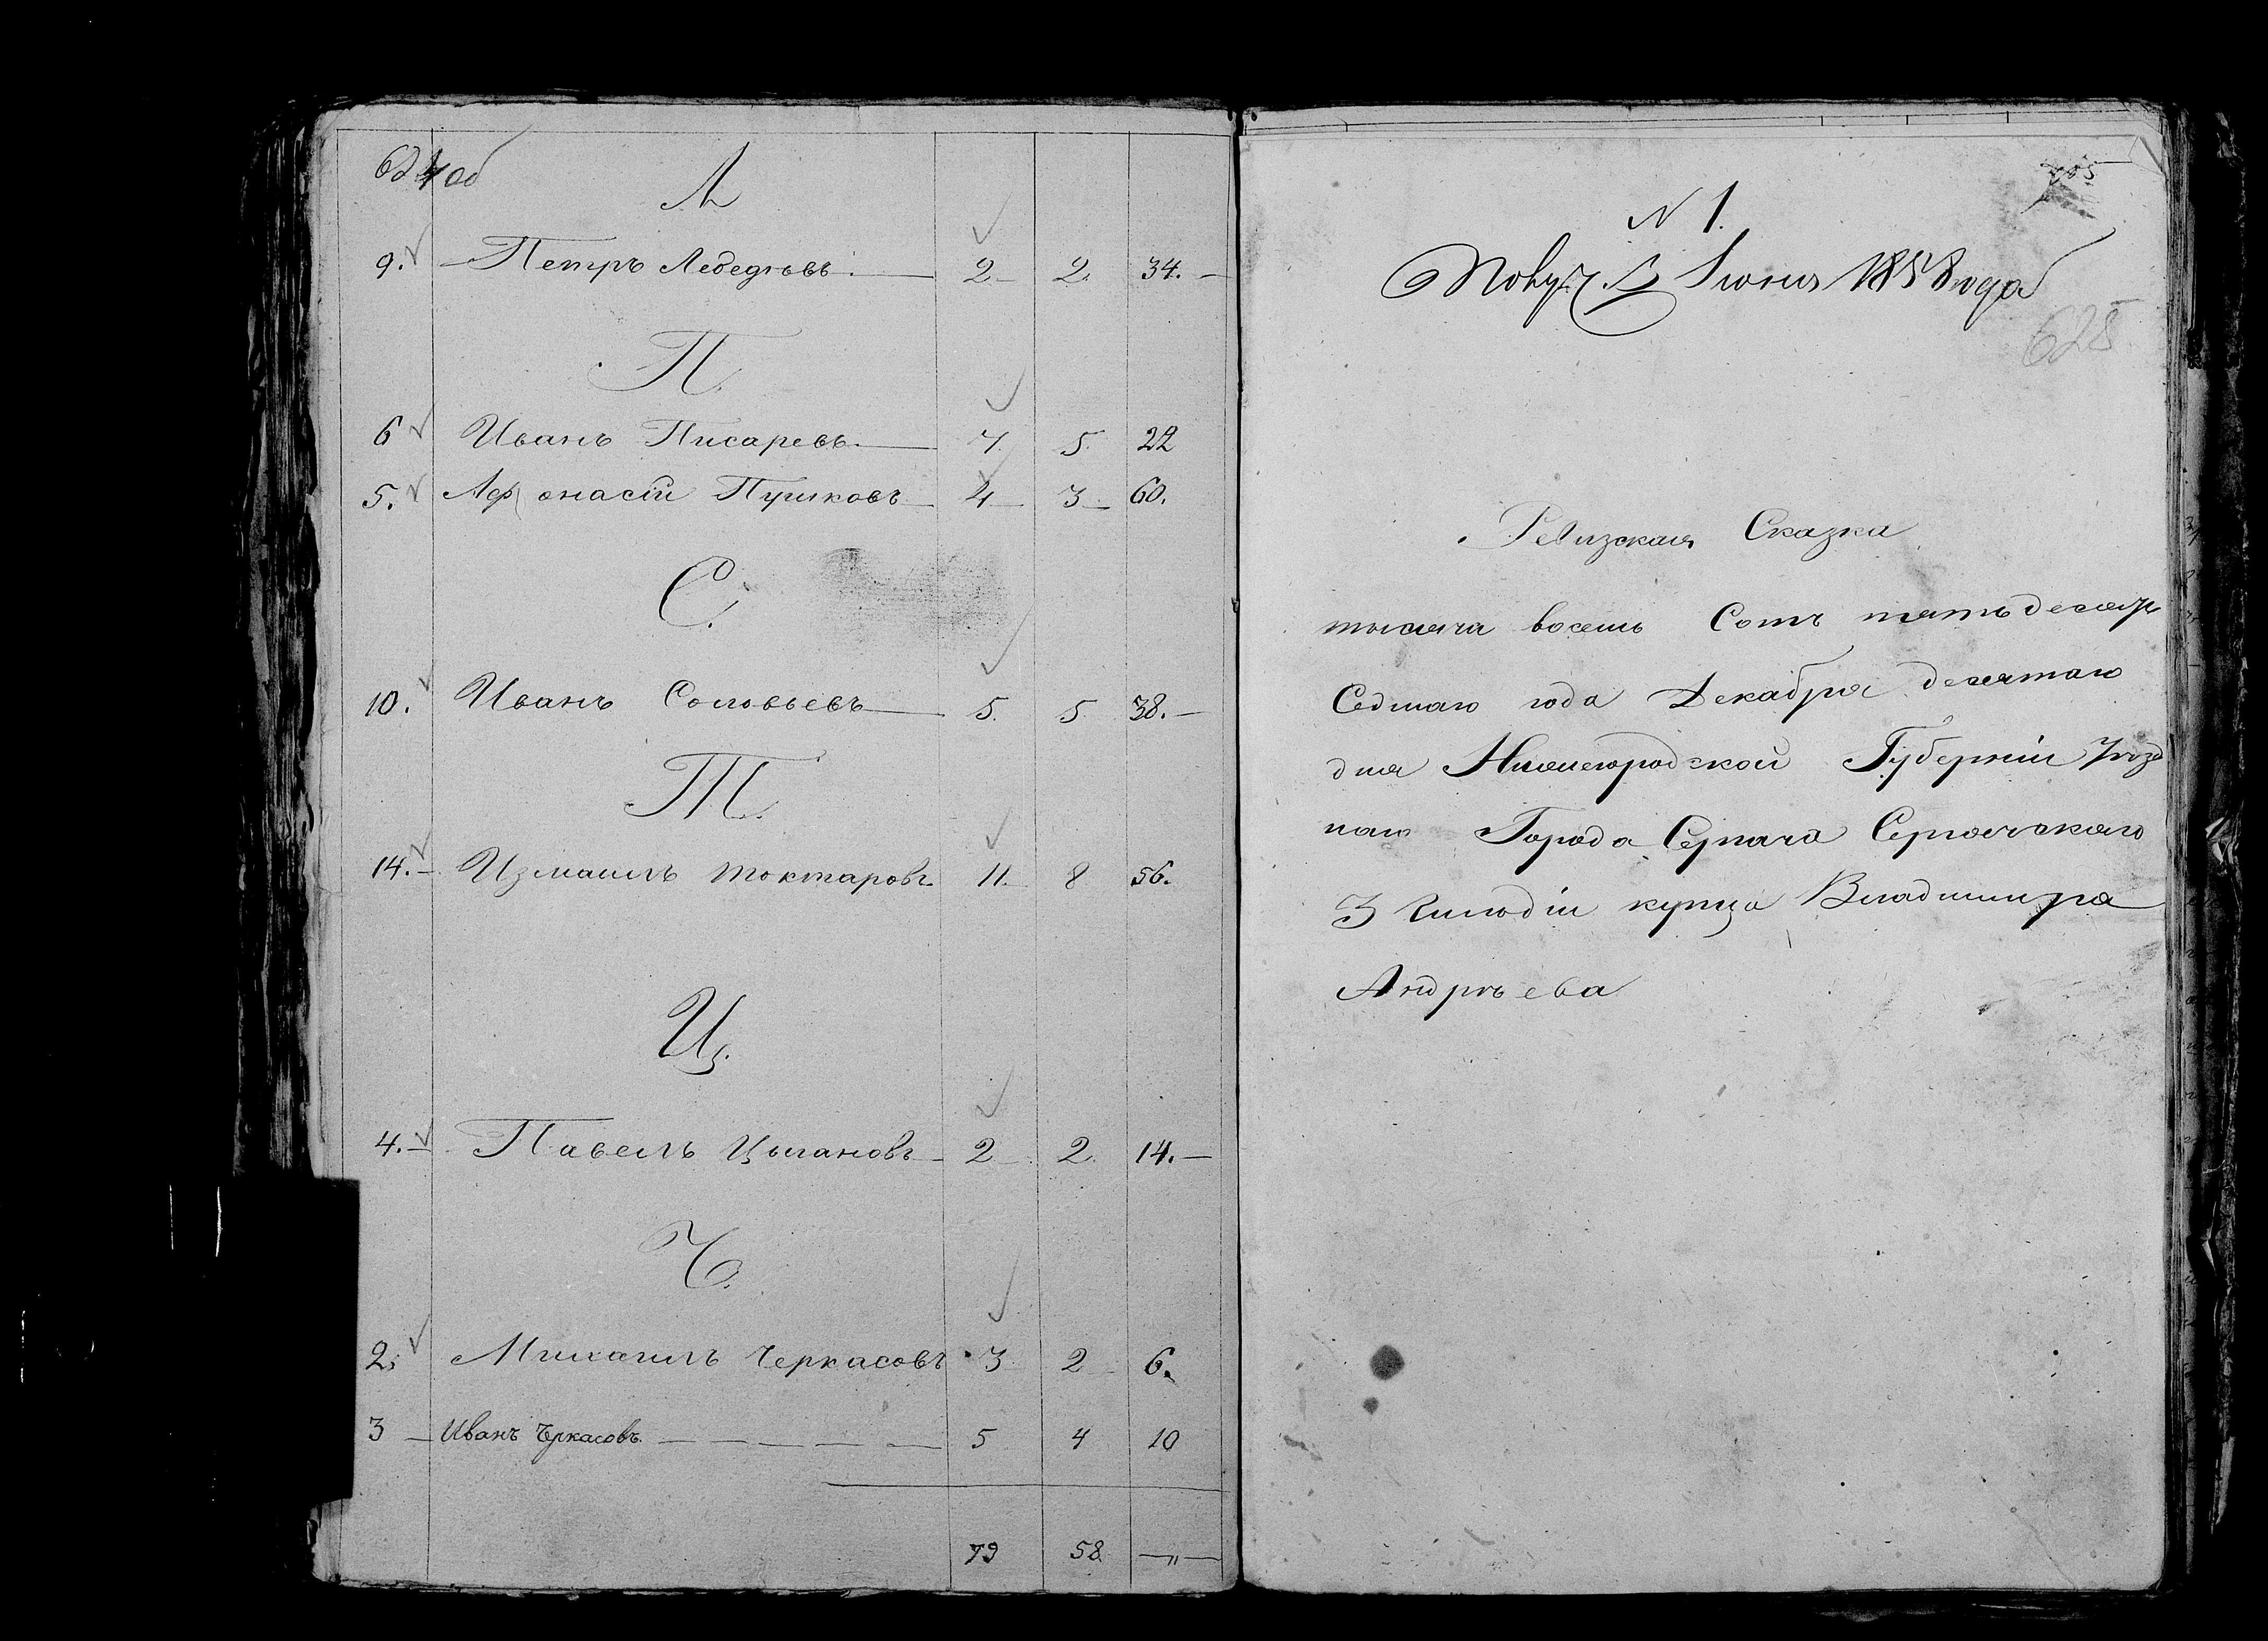 624 об
Л
9. Петръ Лебедевъ. 2 2. 34.
П.
6 Иванъ Писаревъ. 7. 5. 22
5. Афонасій Пушковъ 4 3 60.
С.
10. Иванъ Соловьевъ 5. 5 38.
Т.
14. Измаилъ Токтаровъ. 11. 8 56.
Ц.
4. Павелъ Цыгановъ 2 2. 14.
Ч.
2. Михаилъ Черкасовъ 3 2 6.
3 Иванъ Черкасовъ. 5 4 10
79 58. "
N 1.
Іюня 1858 года
625
Ревизская Сказка
тысяча восемь Сотъ пятьдесятъ
Седмаго года Декабря десятаго
дня Нижегородской Губерніи Уѣзд
наго Города Сергача Сергачскаго
3 Гильдіи купца Владимира
Андрѣева